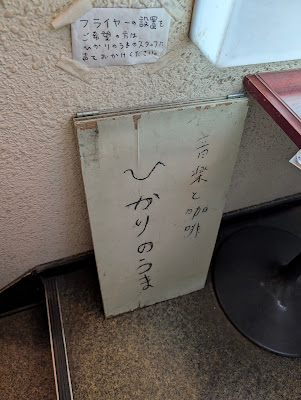 フライヤーの設置を
ご希望の方は、
ひかりのうまのスタッフに
声をおかけください。
音楽と咖啡
ひかりのうま